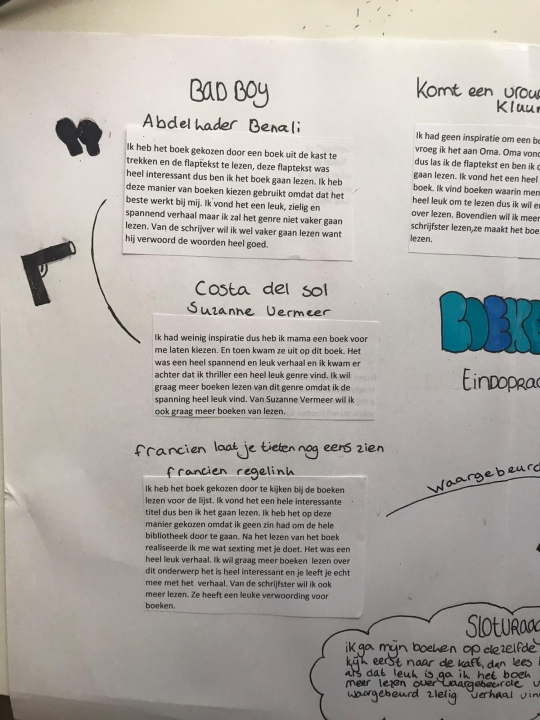 BAD BOY
Abdelkader Benali
Ik heb het boek gekozen door een boek uit de kast te
trekken en de flaptekst te lezen, deze flaptekst was
heel interessant dus ben ik het boek gaan lezen. Ik heb
deze manier van boeken kiezen gebruikt omdat dat het
beste werkt bij mij. Ik vond het een leuk, zielig en
spannend verhaal maar ik zal het genre niet vaker gaan
lezen. Van de schrijver wil ik wel vaker gaan lezen want
hij verwoord de woorden heel goed.
Costa del sol
Suzanne Vermeer
Ik had weinig inspiratie dus heb ik mama een boek voor
me laten kiezen. En toen kwam ze uit op dit boek. Het
was een heel spannend en leuk verhaal en ik kwam er
achter dat ik thriller een heel leuk genre vind. Ik wil
graag meer boeken lezen van dit genre omdat ik de
spanning heel leuk vind. Van Suzanne Vermeer wil ik
ook graag meer boeken van lezen.
francien laat je tieten nog eens zien
francien regelink
Ik heb het boek gekozen door te kijken bij de boeken
lezen voor de lijst. Ik vond het een hele interessante
titel dus ben ik het gaan lezen. Ik heb het op deze
manier gekozen omdat ik geen zin had om de hele
bibliotheek door te gaan. Na het lezen van het boek
realiseerde ik me wat sexting met je doet. Het was een
heel leuk verhaal. Ik wil graag meer boeken lezen over
dit onderwerp het is heel interessant en je leeft je echt
mee met het verhaal. Van de schrijfster wil ik ook
meer lezen. Ze heeft een leuke verwoording voor
boeken.
Komt een vrou
Kluun
Ik had geen inspiratie om een bo
vroeg ik het aan Oma. Oma vond
dus las ik de flaptekst en ben ik
gaan lezen. Ik vond het een heel
boek. Ik vind boeken waarin men
heel leuk om te lezen dus ik wil e
over lezen. Bovendien wil ik meer
schrijfster lezen,ze maakt het boe
lezen.
BOEKE
EINDOPRAC
waargebeurd
SLOTVRAAG
ik ga mijn boeken op dezelfde
kijk eerst naar de kaft, dan lees
als dat leuk is ga ik het boek
meer lezen over waargebeurde v
waargebeurd zielig verhaal vin